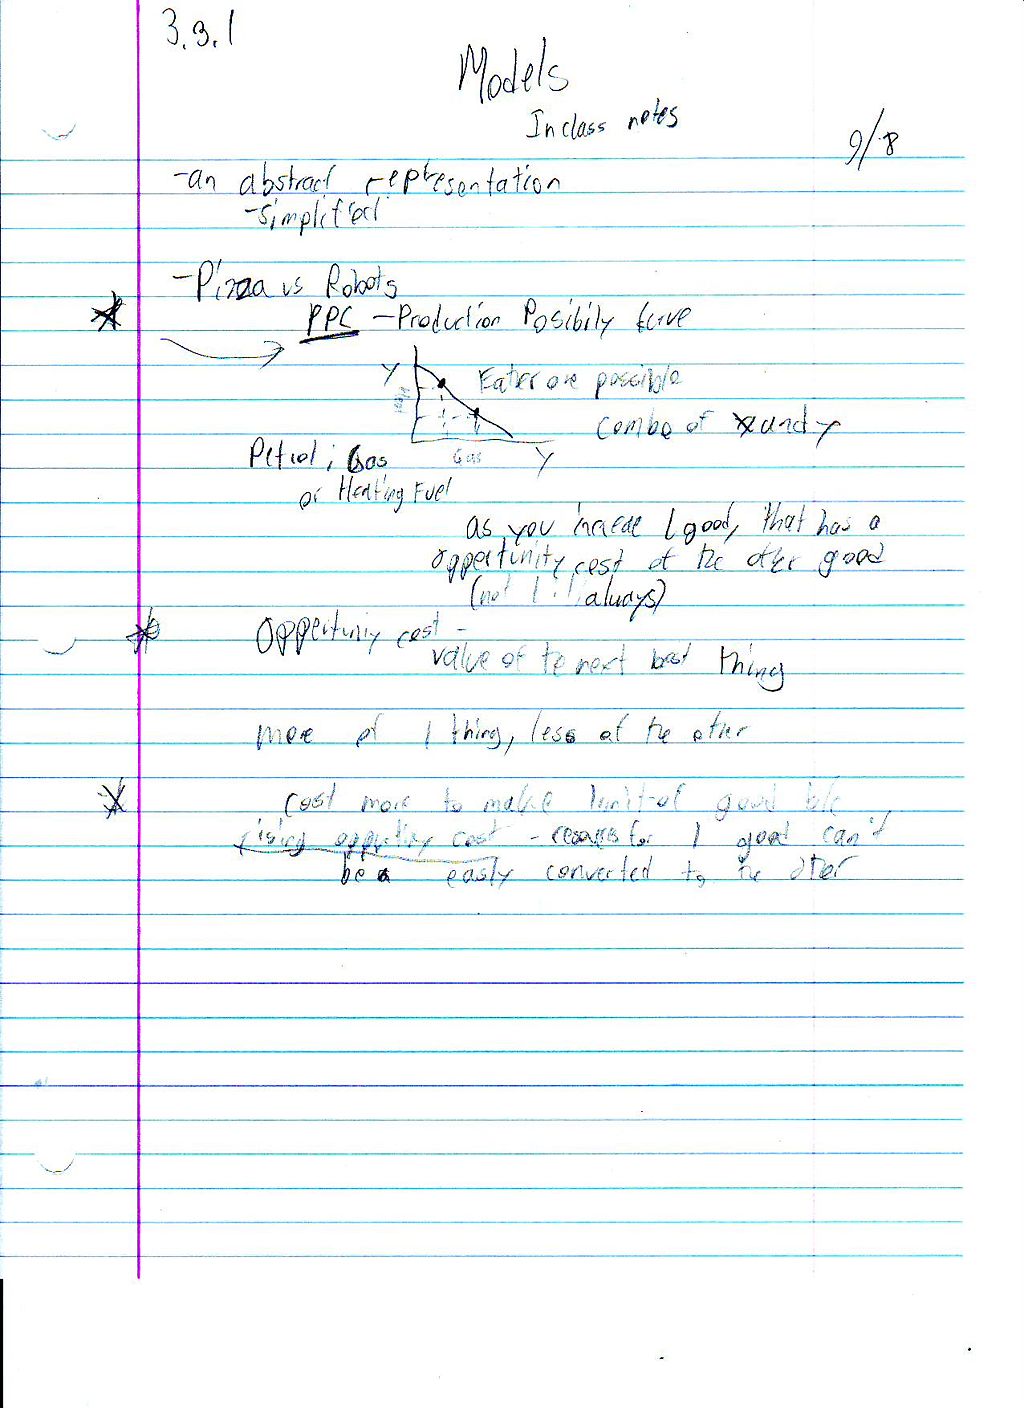 3.3.1
Models
In class notes
9/8
-an abstract representation
-simplified
-Pizza vs Robots
PPC -Production Posibily Curve
Y Eather one possible
combo of X and Y
Gas Y
Petrol; Gas
or Heating Fuel
as you increae 1 good, that has a
opportunity cost of the other good
(not 1:1 always)
Opportuniy cost -
value of te next best thing
more of 1 thing, less of the other
cost more to make 1 unit of good b/c
rising cost - for 1 good can't
be easly converted to the other